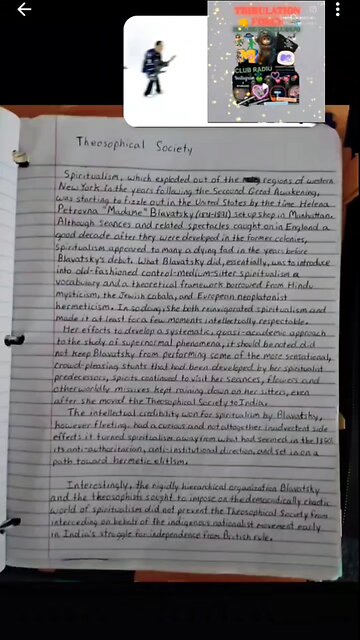 TRIBULATION
FORCE
CLUB RADIO
Theosophical Society
Spiritualism, which exploded out of the regions of western
New York in the years following the Second Great Awakening,
was starting to fizzle out in the United States by the time Helena
Petrovna "Madame" Blavatsky (1831-1891) set up shop in Manhattan.
Although seances and related spectacles caught on in England a
good decade after they were developed in the former colonies,
spiritualism appeared to many a dying fad in the years before
Blavatsky's debut. What Blavatsky did, essentially, was to introduce
into old-fashioned control-medium-sitter spiritualism a
vocabulary and a theoretical framework borrowed from Hindu
mysticism, the Jewish cabala, and European neoplatonist
hermeticism. In so doing, she both reinvigorated spiritualism and
made it at least for a few moments intellectually respectable.
Her efforts to develop a systematic, quasi-academic approach
to the study of supernormal phenomena, it should be noted did
not keep Blavatsky from performing some of the more sensational,
crowd-pleasing stunts that had been developed by her spiritualist
predecessors, spirits continued to visit her seances, flowers and
otherworldly missives kept raining down on her sitters, even
after she moved the Theosophical Society to India.
The intellectual credibility won for spiritualism by Blavatsky,
however fleeting, had a curious and not altogether inadvertent side
effect: it turned spiritualism away from what had seemed in the 1850s
its anti-authoritarian, anti-institutional direction, and set is on a
path toward hermetic elitism.
Interestingly, the rigidly hierarchical organization Blavatsky
and the theosophists sought to impose on the democratically chaotic
world of spiritualism did not prevent the Theosophical Society from
interceding on behalf of the indigenous nationalist movement early
in India's struggle for independence from British rule.